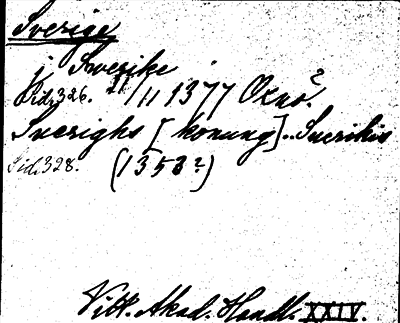 Sverige
j Swerike
Sid. 326. 21/11 1377 Oknö?
Swerighs [konung].. Swerikis
Sid. 328. (1358?)
Vitt. Akad. Handl. XXIV.